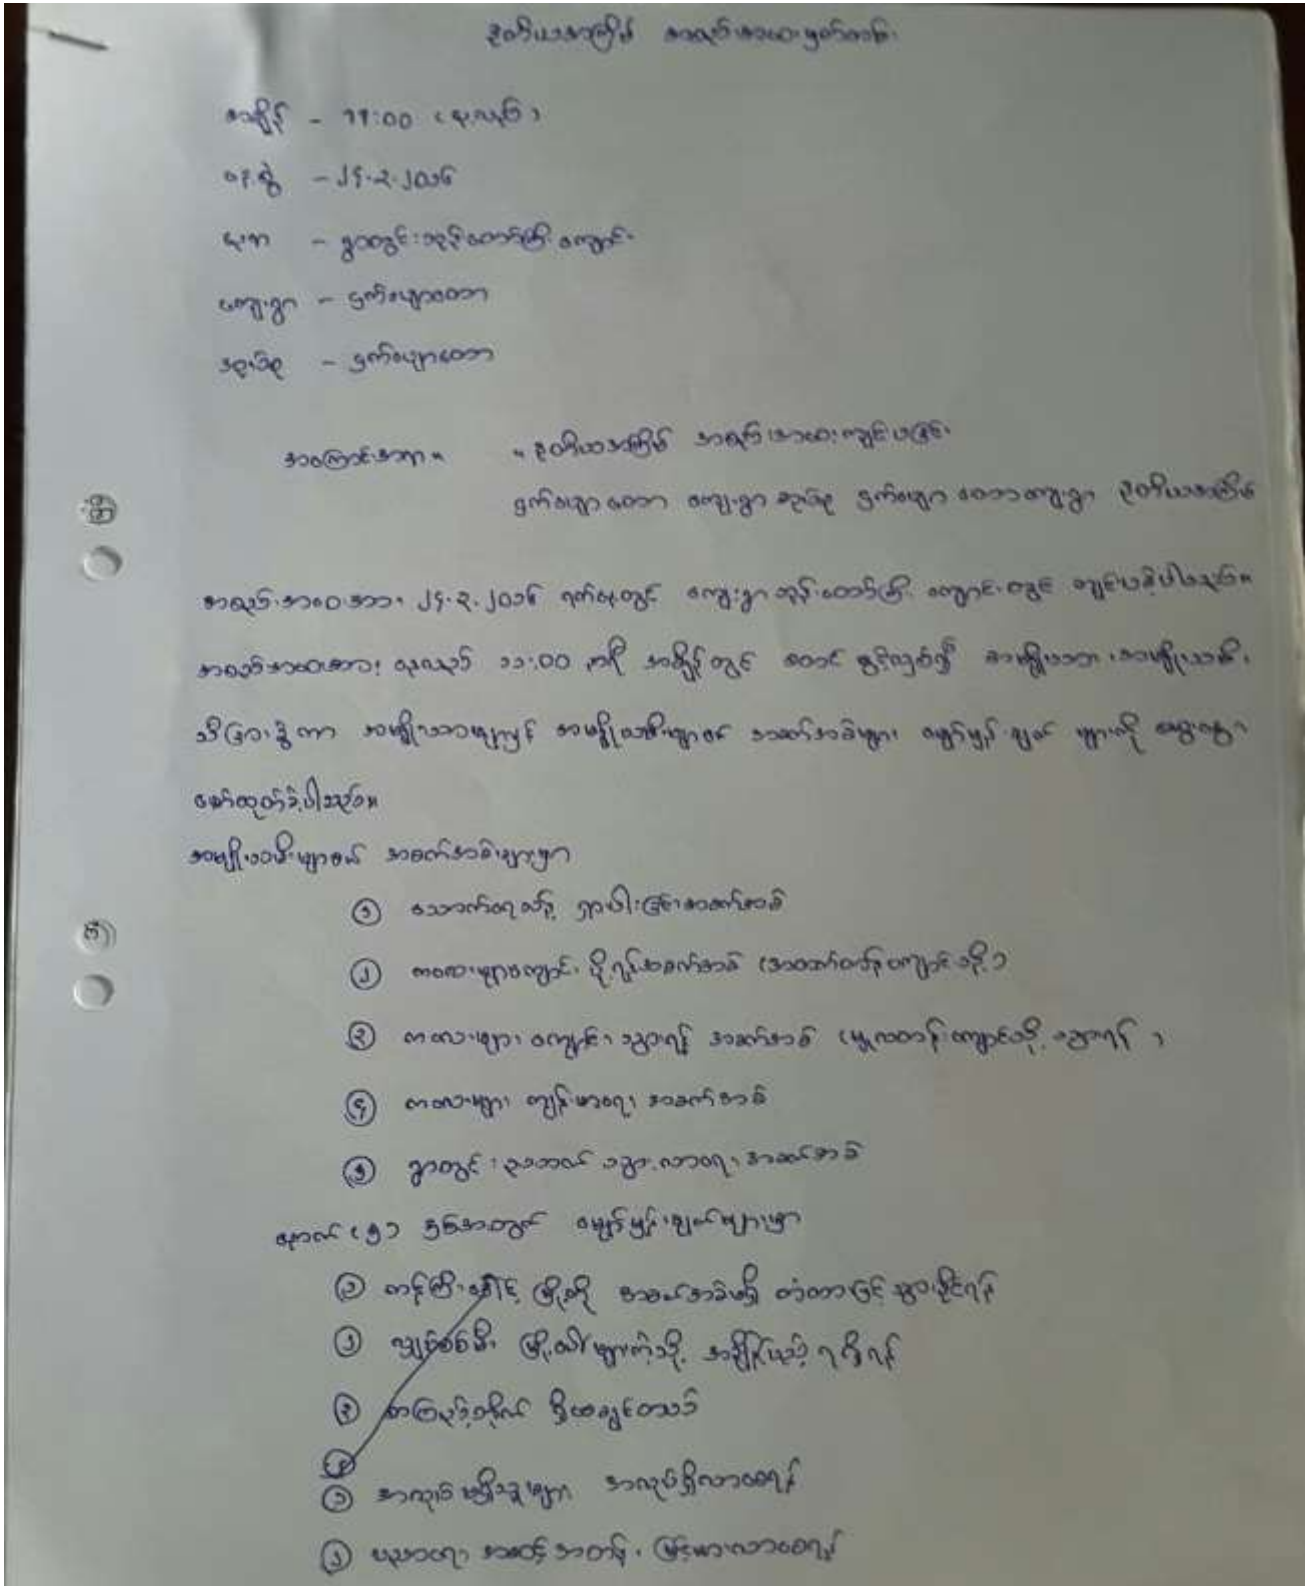 ဒုတိယအကြိမ် အစည်းအဝေးမှတ်တမ်း
အချိန် - 11:00 (နေ့လည်)
နေ့စွဲ - ၂၄.၃.၂၀၁၆
နေရာ - ရွာတွင်းဘုန်းတော်ကြီးကျောင်း
ကျေးရွာ - ငှက်ပျောတော
အုပ်စု - ငှက်ပျောတော
အကြောင်းအရာ။ ။ ဒုတိယအကြိမ် အစည်းအဝေးကျင်းပခြင်း
ငှက်ပျောတော ကျေးရွာ အုပ်စု ငှက်ပျောတောကျေးရွာ ဒုတိယအကြိမ်
အစည်းအဝေးအား ၂၄.၃.၂၀၁၆ ရက်နေ့တွင် ကျေးရွာဘုန်းတော်ကြီး ကျောင်းတွင် ကျင်းပခဲ့ပါသည်။
အစည်းအဝေးအား နေ့လည် ၁၁:၀၀ နာရီ အချိန်တွင် စတင် ဖွင့်လှစ်၍ အမျိုးသား၊ အမျိုးသမီး
သီးခြားခွဲကာ အမျိုးသားများနှင့် အမျိုးသမီးများ၏ အခက်အခဲများ၊ မျှော်မှန်းချက် များကို ဆွေးနွေး
ဖော်ထုတ်ခဲ့ပါသည်။
အမျိုးသမီးများ၏ အခက်အခဲများမှာ
၁ သောက်ရေသန့် ရှားပါးခြင်းအခက်အခဲ
၂ ကလေးများကျောင်း ပို့ရန်အခက်အခဲ (အထက်တန်းကျောင်းသို့)
၃ ကလေးများ ကျောင်း သွားရန် အခက်အခဲ (မူလတန်းကျောင်းသို့ သွားရန်)
၄ ကလေးများ ကျန်းမာရေး အခက်အခဲ
၅ ရွာတွင်း ညဘက် သွားလာရေး အခက်အခဲ
နောက် (၅) နှစ်အတွက် မျှော်မှန်းချက်များမှာ
၁ တန်ကြီးဒေါင့် မြို့သို့ အခက်အခဲမရှိ တံတားဖြင့် သွားနိုင်ရန်
၂ လျှပ်စစ်မီး မြို့ပေါ်များကဲ့သို့ အချိန်ပြည့် ရရှိရန်
၃ စာကြည့်တိုက် ရှိစေချင်သည်
၄
၁ အလုပ်မရှိသူများ အလုပ်ရှိလာစေရန်
၂ ပညာရေး အဆင့်အတန်း မြင့်မားလာစေရန်